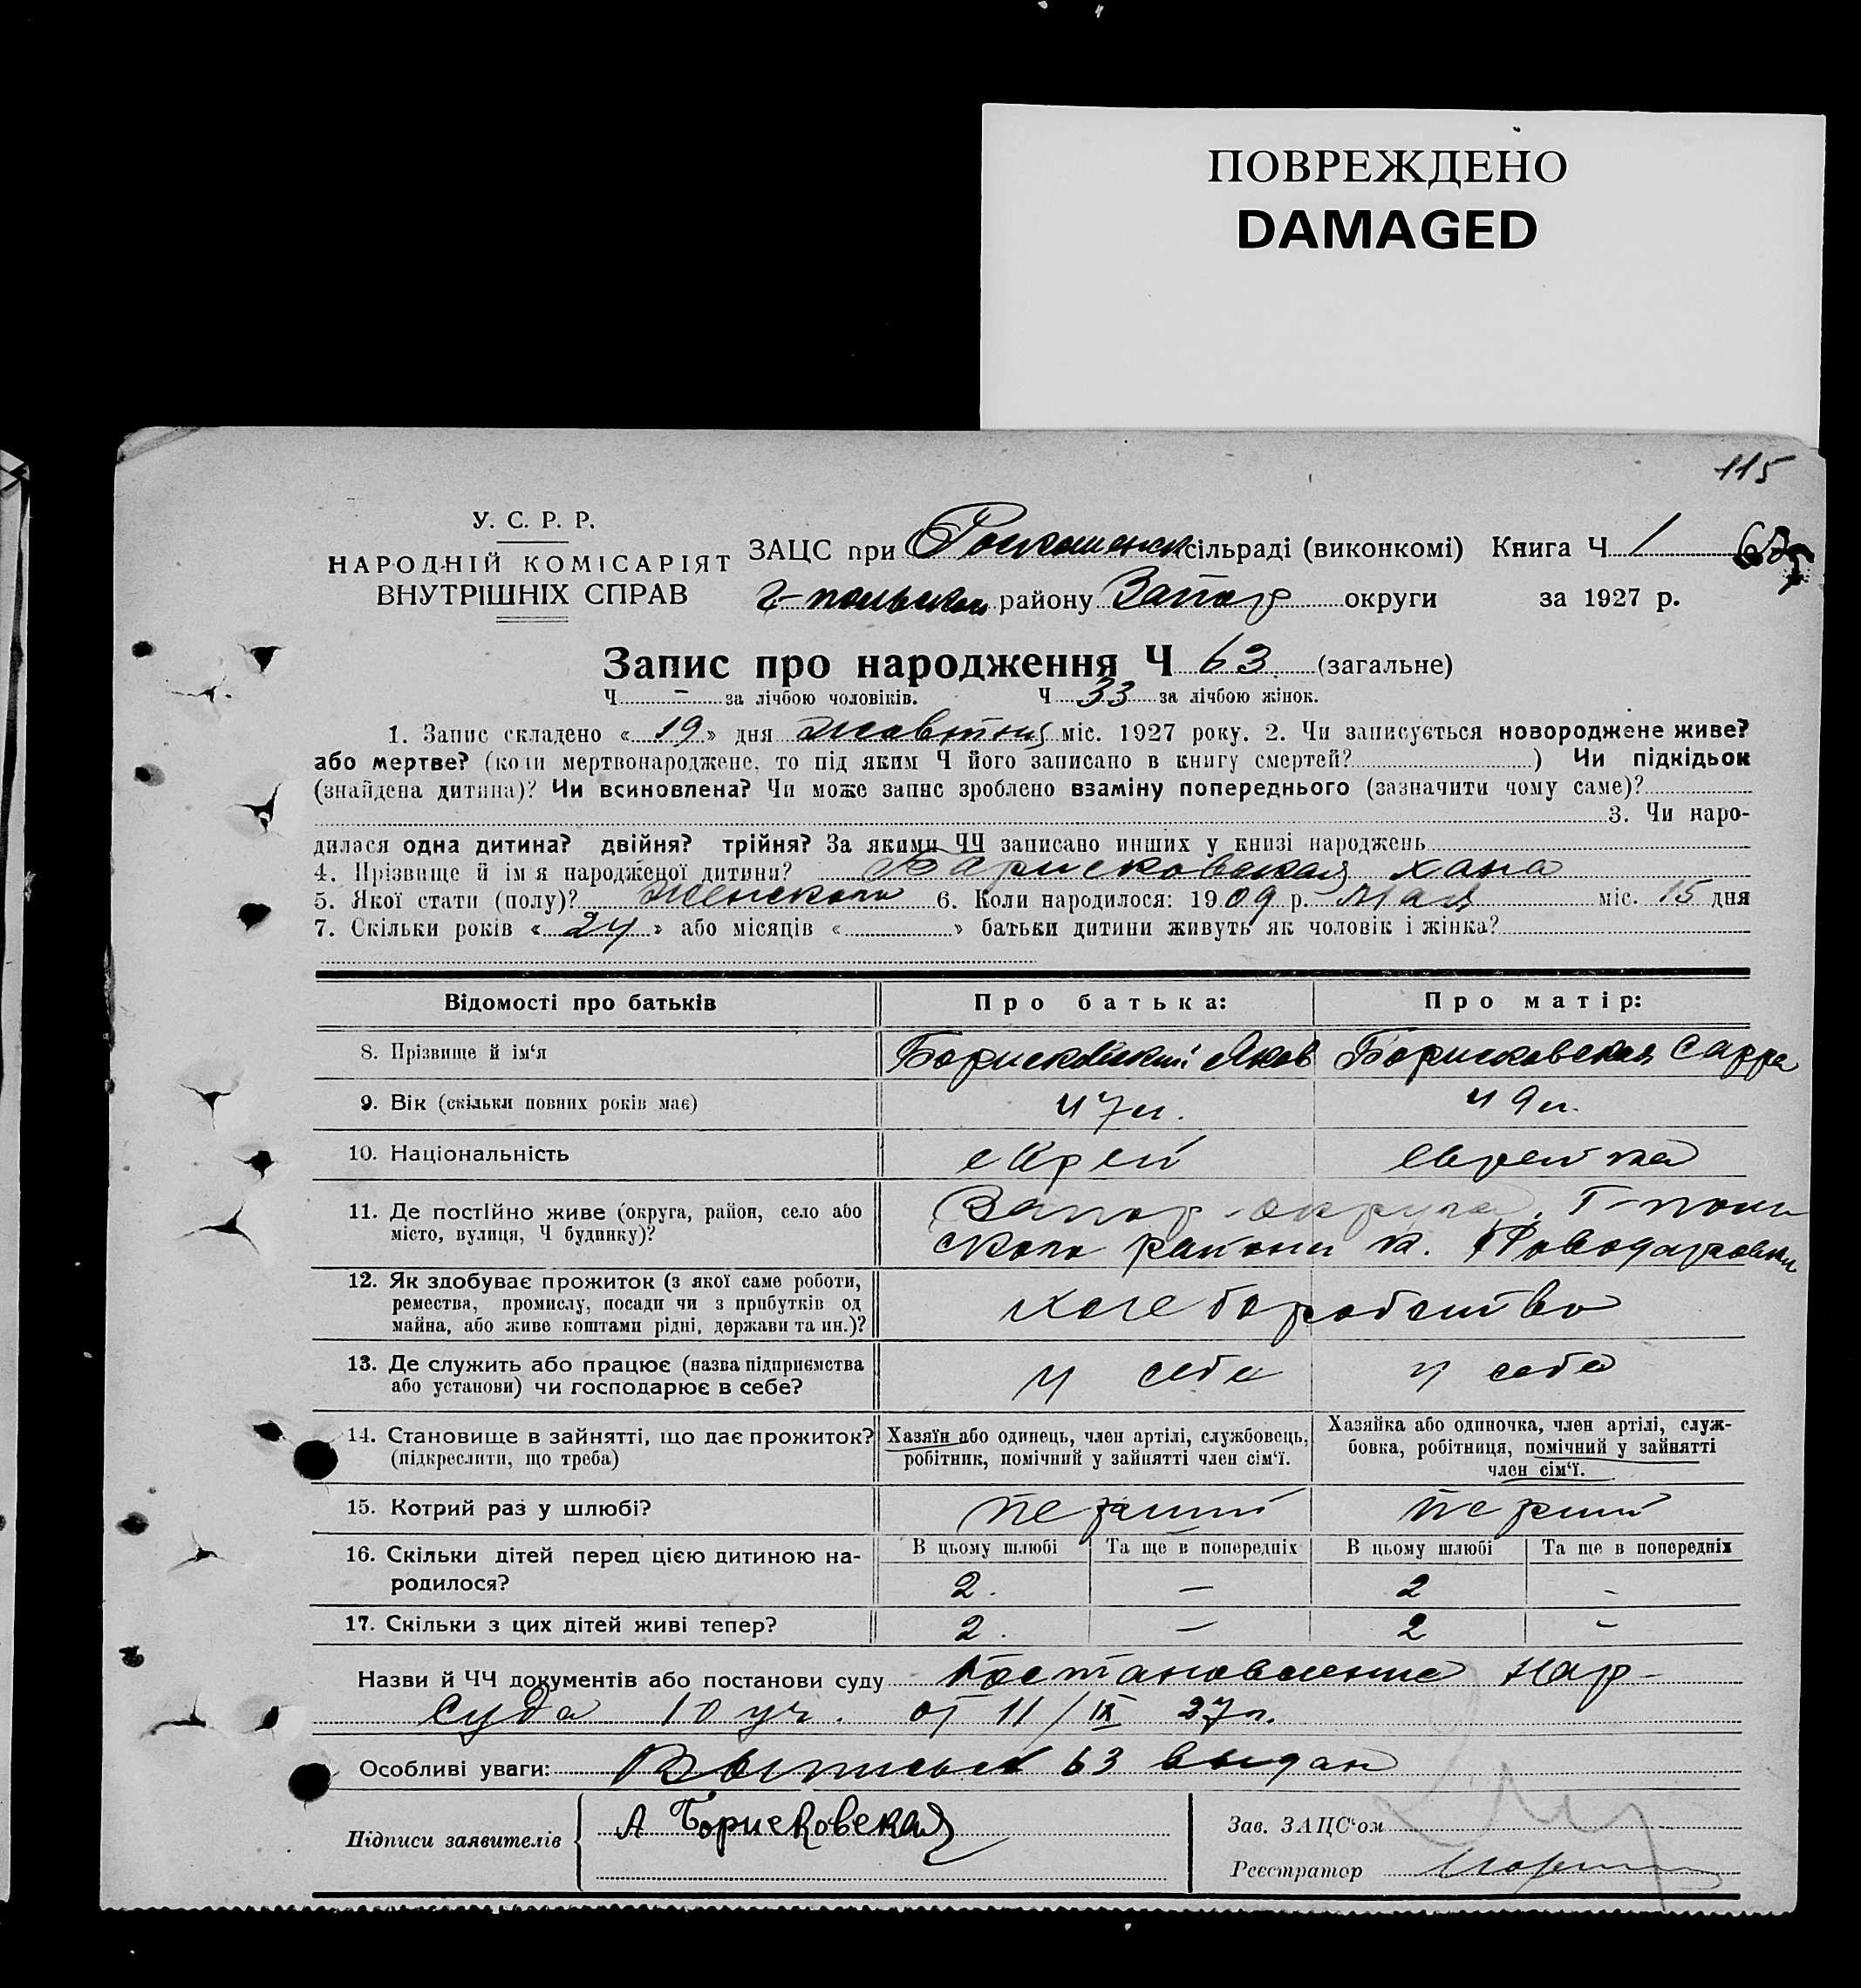 ПОВРЕЖДЕНО
DAMAGED
115
У. С. Р. Р.
НАРОДНІЙ КОМІСАРІЯТ
ВНУТРІШНІХ СПРАВ
ЗАЦС при сільраді (виконкомі) Книга Ч 1
району Запор округи за 1927 р.
Запис про народження Ч 63 (загальне)
Ч – за лічбою чоловіків. Ч 33 за лічбою жінок.
1. Запис складено « 19 » дня жовтня міс. 1927 року. 2. Чи записується новороджене живе?
або мертве? (коли мертвонароджене, то під яким Ч його записано в книгу смертей? ) Чи підкідьок
(знайдена дитина)? Чи всиновлена? Чи може запис зроблено взаміну попереднього (зазначити чому саме)?
3. Чи наро-
дилася одна дитина? двійня? трійня? За якими ЧЧ записано инших у книзі народжень
4. Прізвище й ім'я народженої дитини? Борисковская Хана
5. Якої стати (полу)? Женского 6. Коли народилося: 1909 р. Мая міс. 15 дня
7. Скільки років « 24 » або місяців « » батьки дитини живуть як чоловік і жінка?
Відомості про батьків Про батька: Про матір:
8. Прізвище й ім'я Борисковский Яков Борисковская Сарра
9. Вік (скільки повних років має) 47 л. 49 л.
10. Національність еврей еврейка
11. Де постійно живе (округа, район, село або
місто, вулиця, Ч будинку)?
Запор. округа, Г-поль
ского района к.
12. Як здобуває прожиток (з якої саме роботи,
ремества, промислу, посади чи з прибутків од
майна, або живе коштами рідні, держави та ин.)?
хлеборобство
13. Де служить або працює (назва підприємства
або установи) чи господарює в себе?
у себе у себе
14. Становище в зайнятті, що дає прожиток?
(підкреслити, що треба)
Хазяїн або одинець, член артілі, службовець,
робітник, помічний у зайнятті член сім'ї.
Хазяйка або одиночка, член артілі, служ-
бовка, робітниця, помічний у зайнятті
член сім'ї.
15. Котрий раз у шлюбі? перший перший
16. Скільки дітей перед цією дитиною на-
родилося?
В цьому шлюбі Та ще в попередніх В цьому шлюбі Та ще в попередніх
2. – 2 -
17. Скільки з цих дітей живі тепер? 2. – 2 -
Назви й ЧЧ документів або постанови суду Постановление Нар-
суда 10 уч. от 11/IX 27 г.
Особливі уваги: 63 выдан
Підписи заявителів А Борисковская
Зав. ЗАЦС'ом
Реєстратор